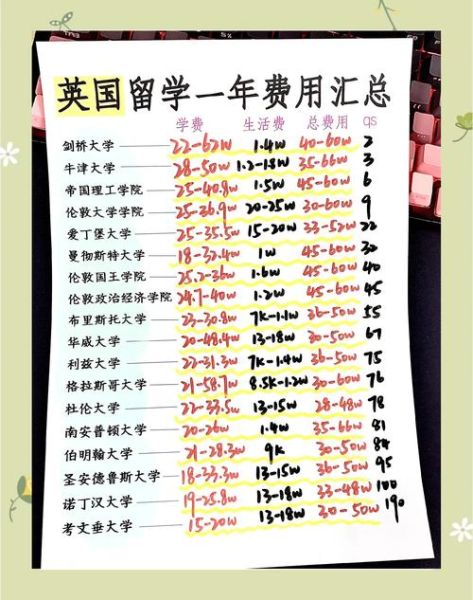 英国留学一年费用汇总
学费 生活费 总费用 qs
剑桥大学 22-62w 1.4w 40-60w 2
牛津大学 28-50w 1.2-1.8w 35-66w 3
帝国理工学院 25-40.8w 1.5w 45-60w 6
伦敦大学学院 25-36.9w 20-25w 30-60w 9
爱丁堡大学 25-35.5w 15-20w 33-52w 22
曼彻斯特大学 18-32.4w 1w 45-60w 30
伦敦国王学院 25.2-36w 1.6w 45-60w 40
伦敦政治经济学院 24.7-40w 1.2w 45-60w 45
布里斯托大学 23-30.8w 7K-1.1w 36-50w 55
华威大学 20-48.4w 13-18w 30-50w 67
利兹大学 22-31.3w 7K-1.4w 36-50w 75
格拉斯哥大学 21-58.7w 8.5K-1.2w 30-60w 76
杜伦大学 22-33.5w 13-15w 28-48w 78
南安普顿大学 20-26w 1.4w 35-66w 81
伯明翰大学 21-28.3w 9K 30-50w 84
圣安德鲁斯大学 18-33.3w 13-15w 36-50w 95
诺丁汉大学 19-25.8w 13-18w 33-48w 100
考文垂大学 15-20w 13-18w 30-50w 190